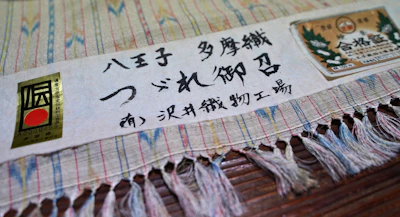 八王子 多摩織
つづれ御召
(有)沢井織物工場
伝
合格証